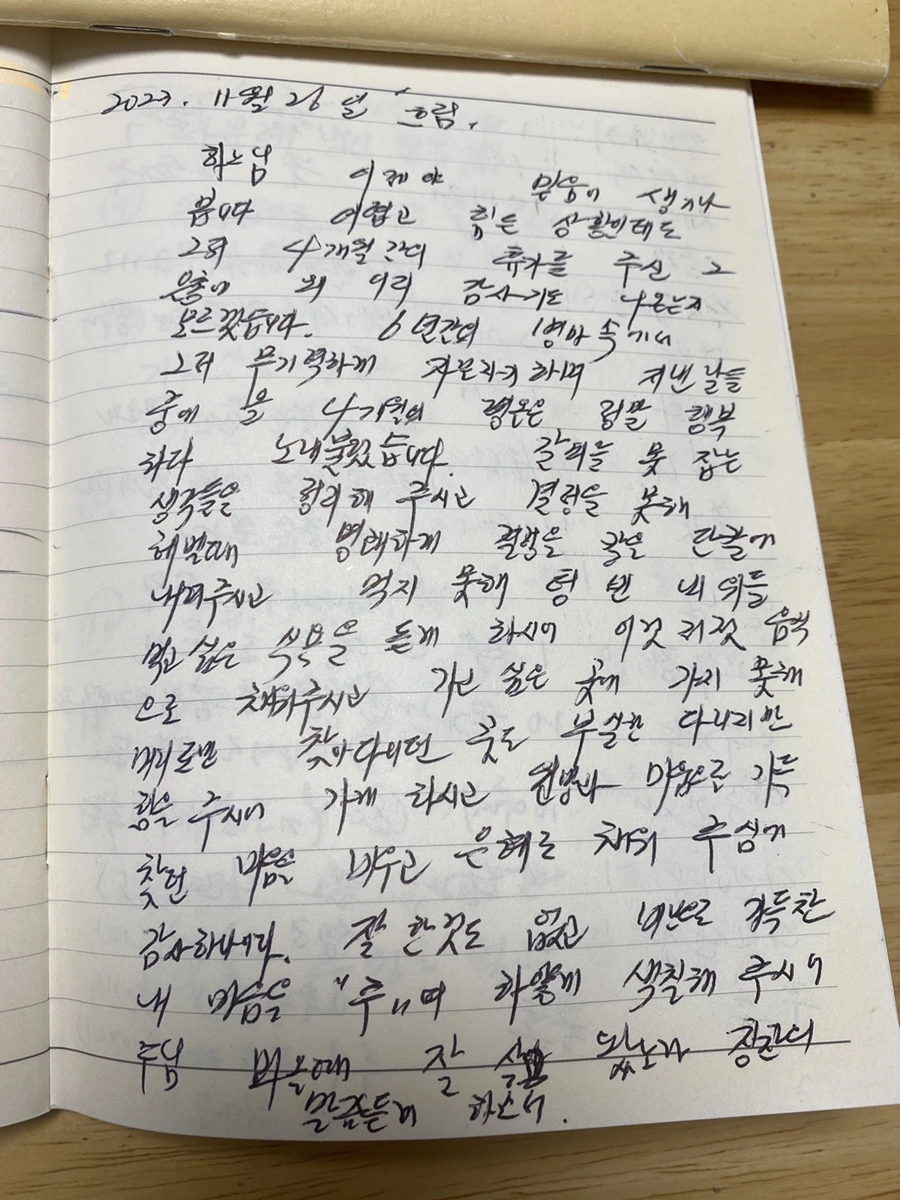 2023. 11월 26일 흐림.
하느님 이제야 믿음이 생기나
봅니다 어렵고 힘든 상황인데도
그러 4개월간의 휴가를 주신 그
은총에 왜 이리 감사기도 나오는지
모르겠습니다. 6년간의 병마 속에서
그저 무기력하게 자문자기 하며 지낸 날들
중에 올 4개월의 평온은 정말 행복
하다 노래불렀습니다. 갈피를 못 잡는
생각들을 정리해 주시고 결정을 못해
헤멜때 명쾌하게 결방을 같은 단칼에
내려주시고 먹지 못해 텅 빈 내 위를
먹고 싶은 식욕을 돋게 하시어 이것 저것 음식
으로 채워주시고 가고 싶은 곳에 가지 못해
머리로만 찾아다니던 곳도 부실한 다리지만
힘을 주시어 가게 하시고 원망과 미움으로 가득
찾던 마음을 비우고 은혜로 채워 주심에
감사하나이다. 잘 한것도 없고 비난으로 가득찬
내 마음을 "주"며 하얗게 색칠해 주시어
주님 뵈올때 잘 살 았노라 장군의
말씀듣게 하소서.